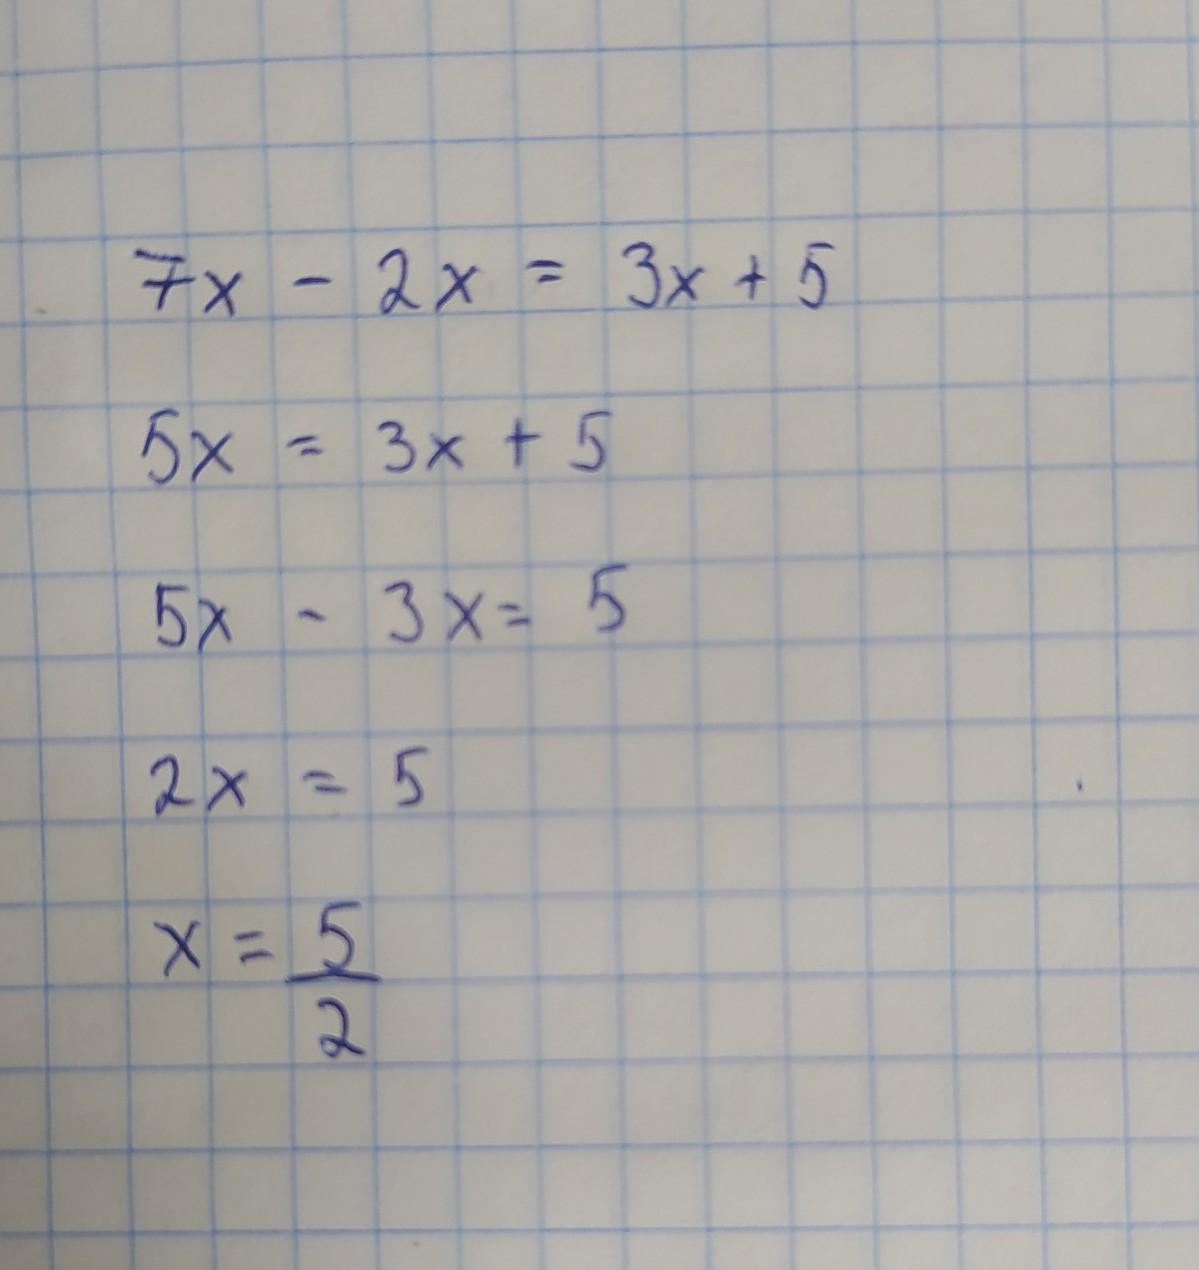 7x - 2x = 3x + 5
5x = 3x + 5
5x - 3x = 5
2x = 5
x = 5/2